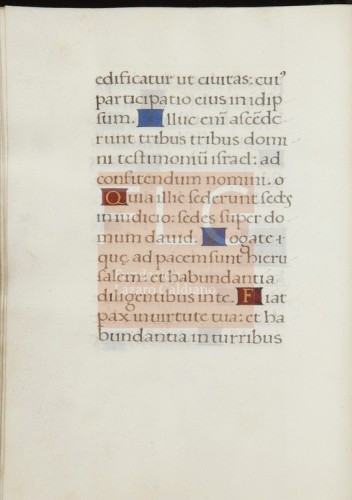 edificatur ut ciuitas: cuiꝰ
participatio eius in idip
sum. Illuc em̄ ascēde
runt tribus tribus domi
ni testimoniū israel: ad
confitendum nomini. o
Quia illic sederunt sedꝭ
in iudicio: sedes super do
mum dauid. Rogate
quę ad pacem sunt hieru
salem: et habundantia
diligentibus in te. Fiat
pax in uirtute tua: et ha
bundantia in turribus
Lázaro Galdiano